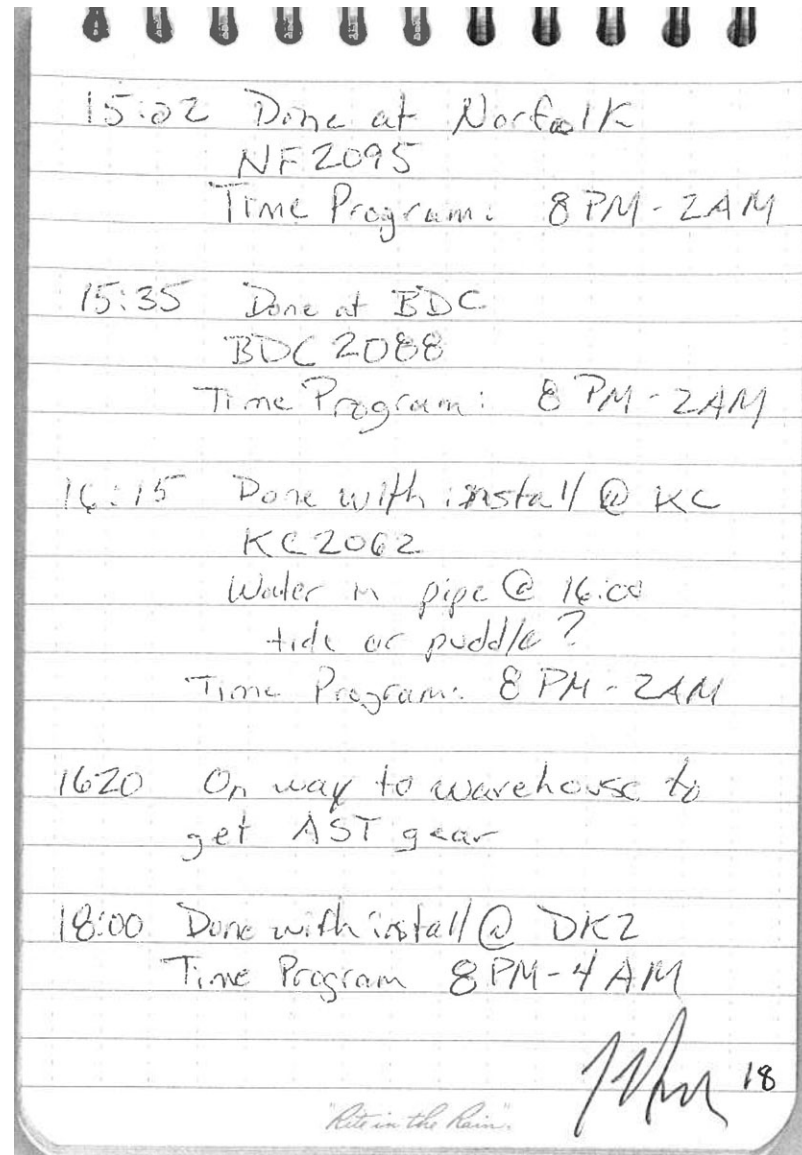 15:02 Done at Norfolk
NF2095
Time Program: 8 PM - 2AM
15:35 Done at BDC
BDC 2088
Time Program: 8 PM - 2AM
16:15 Done with install @ KC
KC2062
Water in pipe @ 16:00
tide or puddle?
Time Program: 8 PM - 2AM
1620 On way to warehouse to
get AST gear
18:00 Done with install @ DK2
Time Program 8 PM - 4 AM
18
"Rite in the Rain".